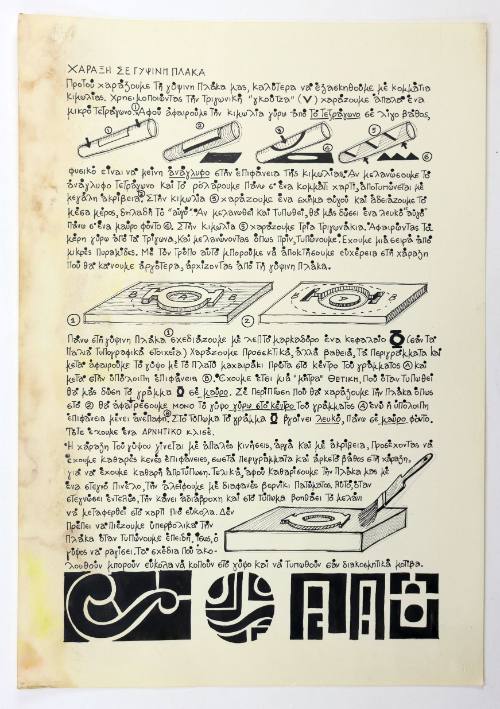 ΧΑΡΑΞΗ ΣΕ ΓΥΨΙΝΗ ΠΛΑΚΑ
Προτού χαράξουμε τη γύψινη πλάκα μας, καλύτερα να εξασκηθούμε με κομμάτια
κιμωλίας. Χρησιμοποιώντας την τριγωνική "γκούτζα" (V) χαράζουμε απαλά ένα
μικρό τετράγωνο. ① Αφού αφαιρούμε την κιμωλία γύρω από το τετράγωνο σε λίγο βάθος,
① ② ③ ④ ⑤ ⑥
φυσικό είναι να μείνη ανάγλυφο στην επιφάνεια της κιμωλίας. Αν μελανώσουμε το
ανάγλυφο τετράγωνο και το ρολάρουμε πάνω σ' ένα κομμάτι χαρτί, αποτυπώνεται με
μεγάλη ακρίβεια. ② Στην κιμωλία ③ χαράζουμε ένα σχήμα αυγού και αδειάζουμε το
μέσα μέρος, δηλαδή το "αυγό". Αν μελανωθεί και τυπωθεί, θα μας δώσει ένα λευκό "αυγό"
πάνω σ' ένα μαύρο φόντο ④. Στην κιμωλία ⑤ χαράζουμε τρία τριγωνάκια. Αφαιρώντας τα
μέρη γύρω από τα τρίγωνα, και μελανώνοντας όπως πριν, τυπώνουμε. Έχουμε μια σειρά από
μικρές πυραμίδες. Με τον τρόπο αυτό μπορούμε να αποκτήσουμε ευχέρεια στη χάραξη
που θα κάνουμε αργότερα, αρχίζοντας από τη γύψινη πλάκα.
① A B B ② B A B
Πάνω στη γύψινη πλάκα ① σχεδιάζουμε με λεπτό μαρκαδόρο ένα κεφαλαίο Ο (σαν τα
παλιά τυπογραφικά στοιχεία) Χαράζουμε προσεκτικά, αλλά βαθειά, τα περιγράμματα και
μετά αφαιρούμε το γύψο με το πλατύ μαχαιράκι πρώτα στο κέντρο του γράμματος Ⓐ και
μετά στην υπόλοιπη επιφάνεια Ⓑ. Έχουμε έτσι μια "μήτρα" ΘΕΤΙΚΗ, που όταν τυπωθεί
θα μας δώση το γράμμα Ο σε μαύρο. Σε περίπτωση που θα χαράξουμε την πλάκα όπως
στο ② θα αφαιρέσουμε μόνο το γύψο γύρω στο κέντρο του γράμματος Ⓐ ενώ η υπόλοιπη
επιφάνεια μένει ανέπαφη. Ⓑ Στο τύπωμα το γράμμα Ο βγαίνει λευκό, πάνω σε μαύρο φόντο.
Τότε έχουμε ένα ΑΡΝΗΤΙΚΟ κλισέ.
Η χάραξη του γύψου γίνεται με απαλές κινήσεις, αργά και με ακρίβεια, προσέχοντας να
έχουμε καθαρές κενές επιφάνειες, σωστά περιγράμματα και αρκετό βάθος στη χάραξη,
για να έχουμε καθαρή αποτύπωση. Τελικά, αφού καθαρίσουμε την πλάκα μας με
ένα στεγνό πινέλο, την αλείφουμε με διαφανές βερνίκι πατώματος. Αυτό, όταν
στεγνώσει εντελώς, την κάνει αδιάβροχη και στο τύπωμα βοηθάει το μελάνι
να μεταφερθεί στο χαρτί πιο εύκολα. Δεν
πρέπει να πιέζουμε υπερβολικά την
πλάκα όταν τυπώνουμε επειδή, ίσως, ο
γύψος να ραγίσει. Τα σχέδια που ακο-
λουθούν μπορούν εύκολα να κοπούν στο γύψο και να τυπωθούν σαν διακοσμητικά μοτίβα.